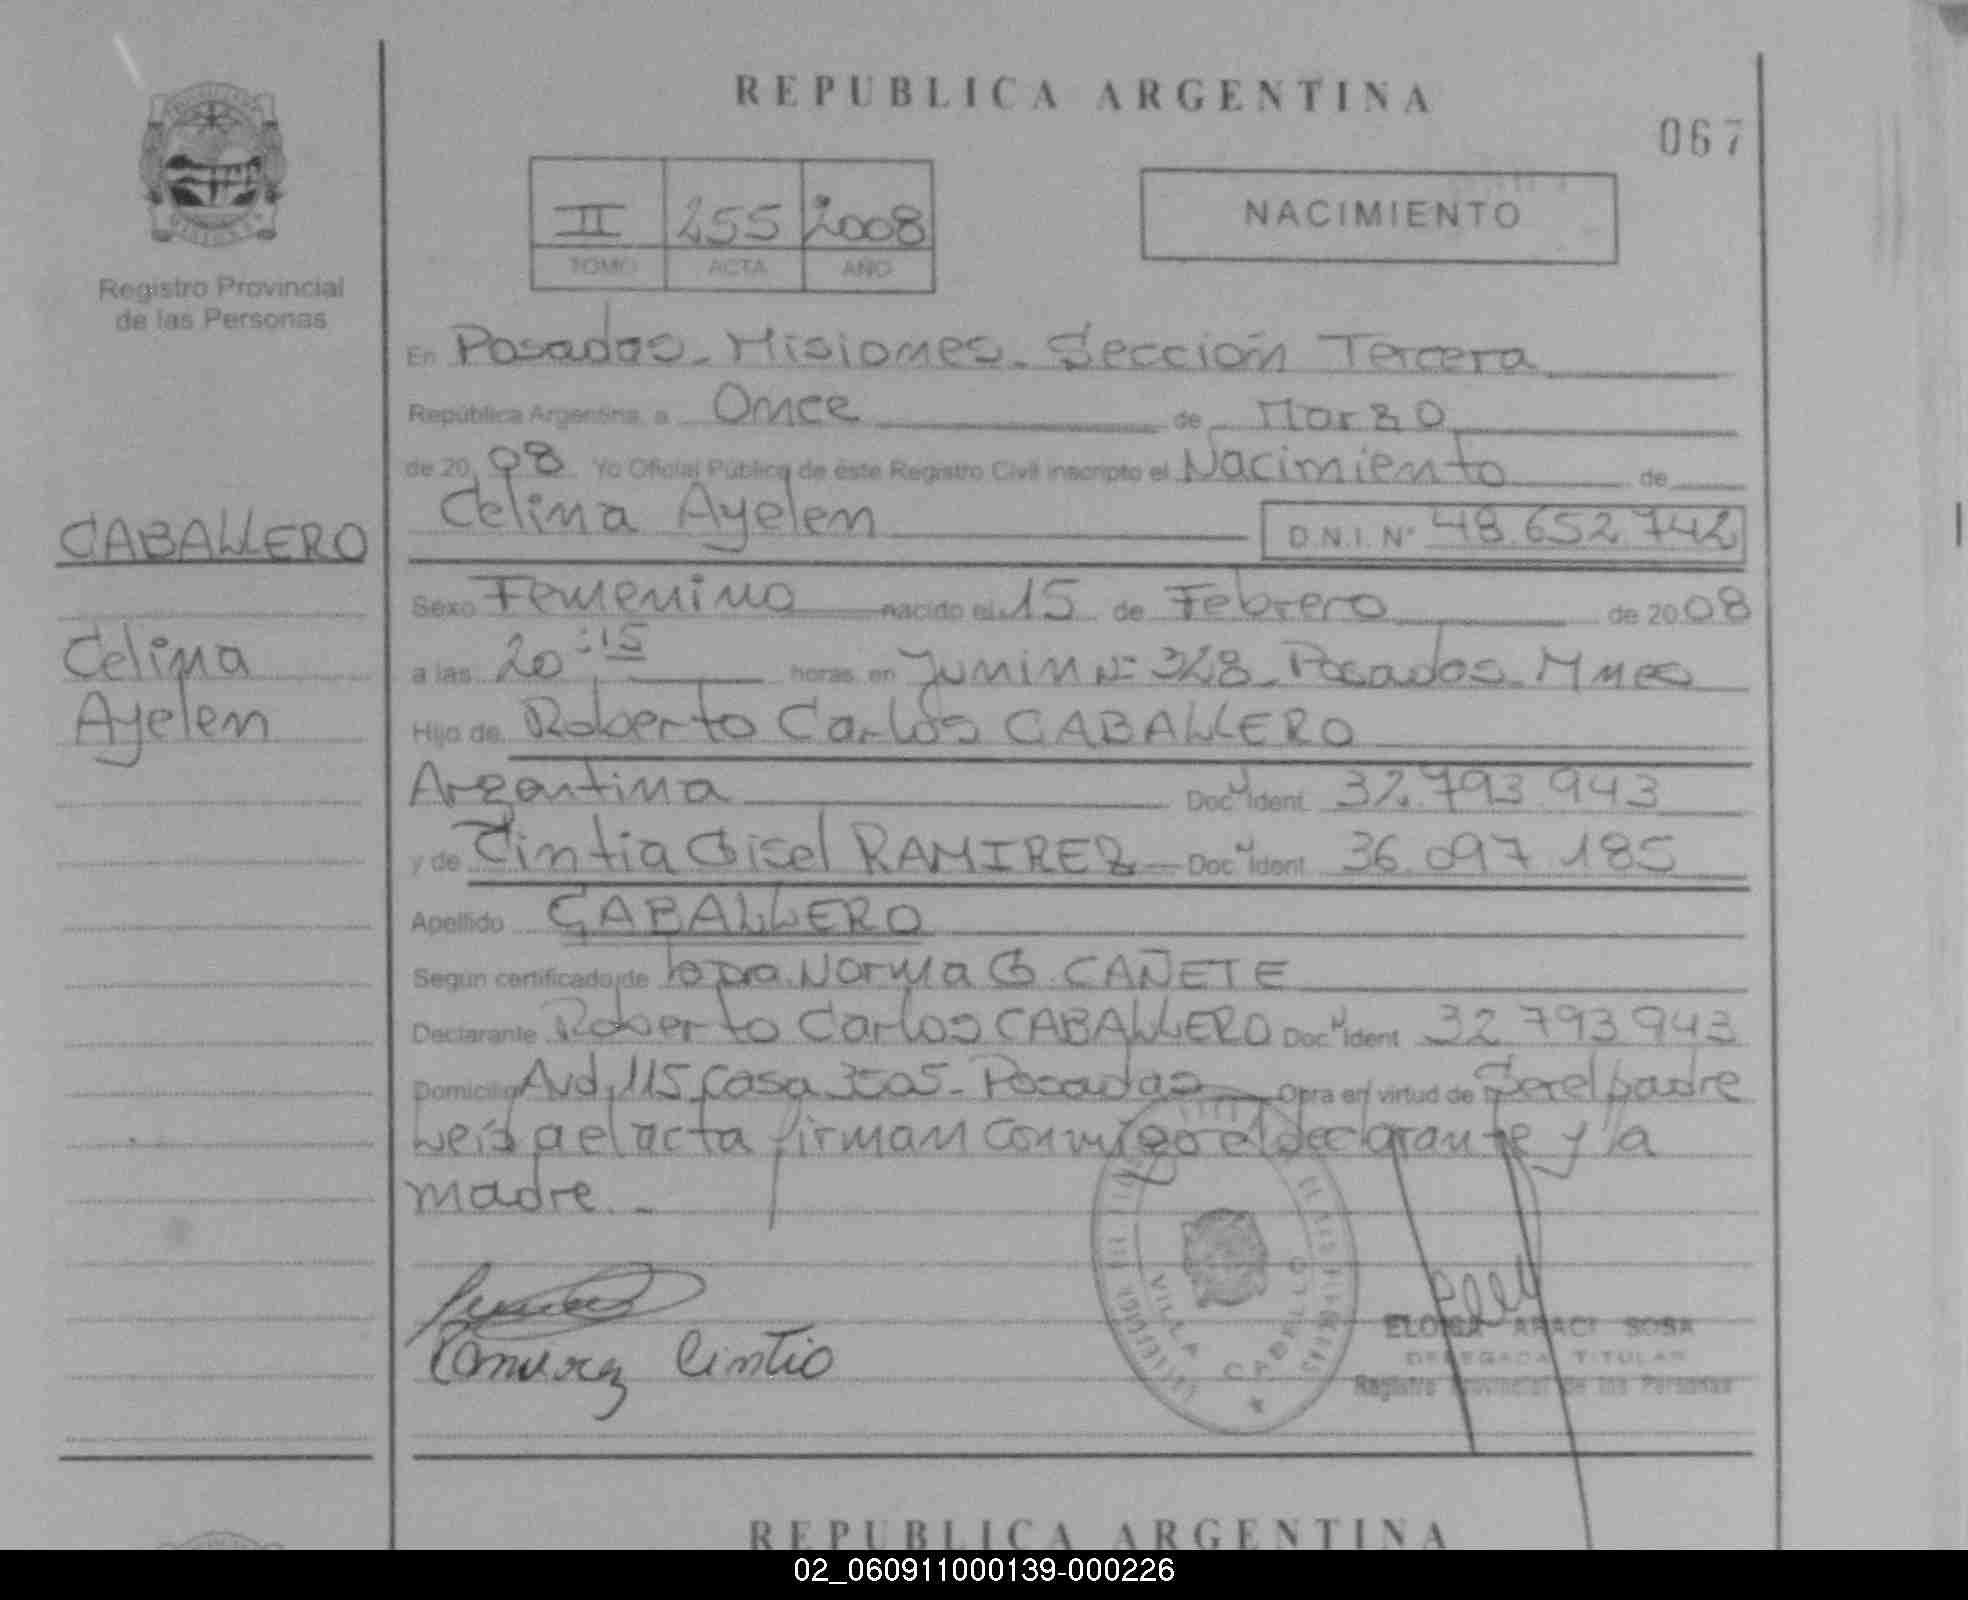 REPUBLICA ARGENTINA
067
II 255 2008
TOMO ACTA AÑO
NACIMIENTO
Registro Provincial
de las Personas
CABALLERO
Celina
Ayelen
En Posadas - Misiones - Sección Tercera
República Argentina, a Once de Marzo
de 20 08 Yo Oficial Público de éste Registro Civil inscripto el Nacimiento de
Celina Ayelen D.N.I. Nº 48.652.742
Sexo Femenino nacido el 15 de Febrero de 20 08
a las 20:15 horas en Junin Nº 328 - Posadas - Mnes
Hijo de Roberto Carlos CABALLERO
Argentina Doc Ident. 32.793.943
y de Cintia Gisel RAMIREZ Doc Ident. 36.097.185
Apellido CABALLERO
Según certificado de Norma G. CAÑETE
Declarante Roberto Carlos CABALLERO Doc Ident 32.793.943
Domicilio Avd. 115 Casa 3505 - Posadas Obra en virtud de Ser el padre
Leida el acta firman conmigo el declarante y la
madre. -
Ramirez Cintia
VILLA CABELLO
ELOISA ARACI SOSA
DELEGADA TITULAR
Registro Provincial de las Personas
REPUBLICA ARGENTINA
02_060911000139-000226